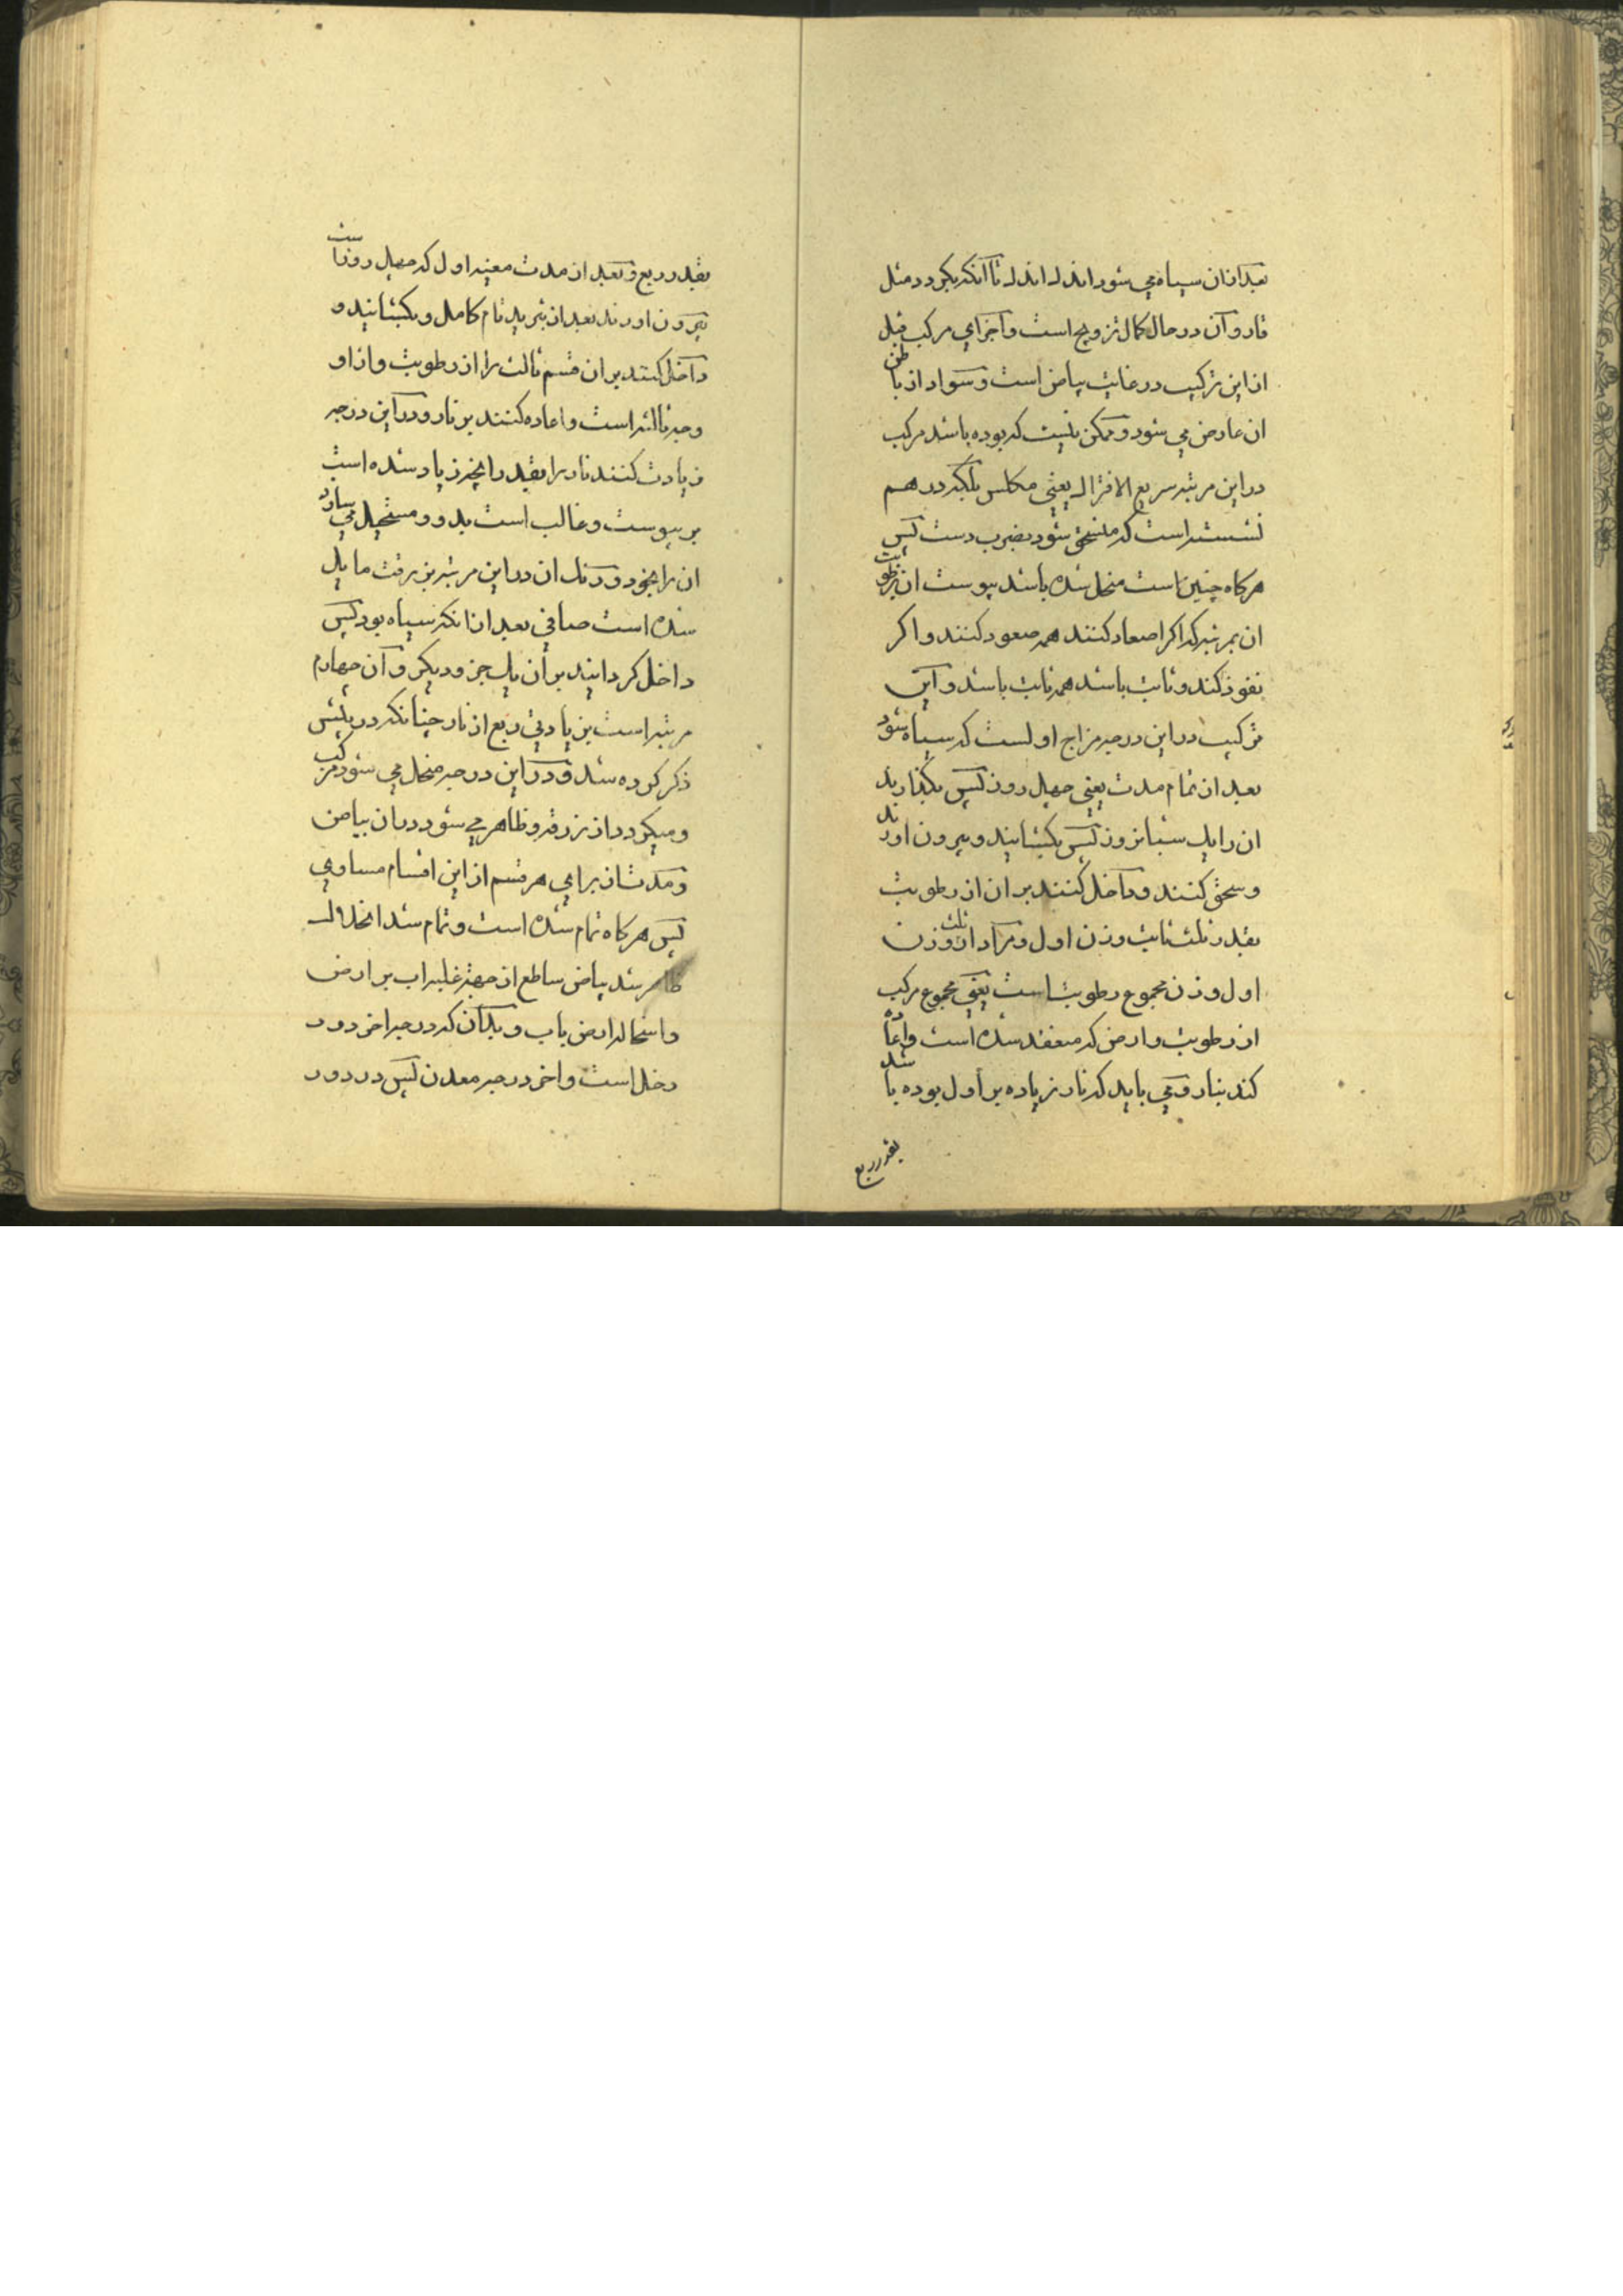 بعد از ان سیاه می شود اندک اندک تا آنکه بگردد مثل
قار و آن در حال کمال تزویج است و اجزای مرکب قبل
از این ترکیب در غایت بیاض است و سواد از باطن
ان عارض می شود و ممکن نیست که بوده باشد مرکب
در این مرتبه سریع الافتراک یعنی مکلس بلکه در هم
نشسته است که منسحق شود بضرب دست پس
هرکاه چنین است منحل شده باشد یبوست ان برطوبت
ان بمرتبه که اکر اصعاد کنند همه صعود کنند و اکر
نفوذ کند و ثابت باشد همه ثابت باشد و این
ترکیب در این درجه مزاج اولست که سیاه شود
بعد از تمام مدت یعنی چهل روز پس بگذارید
ان را یک شبانروز پس بکشایند و بیرون اورند
و سحق کنند و داخل کنند بر ان از رطوبت
بقدر ثلث ثابت وزن اول و مراد از ثلث وزن
اول وزن مجموع رطوبت است یعنی مجموع مرکب
از رطوبت و ارض که منعقد شده است و اعاده
کند بنار و می باید که نار زیاده بر اول بوده باشد
بقدر ربع
بقدر ربع و بعد از مدت معینه اول که چهل روز است
بیرون اورند بعد از تبرید تام کامل و بکشایند و
داخل کنند بر ان قسم ثالث را از رطوبت و از او
وجه ثالثه است و اعاده کنند بر نار و در این درجه
زیادت کنند نار را بقدر دانچه زیاد شده است
بر یبوست و غالب است بدو و مستحیل می سازد
ان را بخود و رنک ان در این مرتبه بزرقت مایل
شده است صافی بعد از انکه سیاه بود پس
داخل کردانید بر ان یک جزو دیکر و آن چهارم
مرتبه است بزیادتی ربع از نار چنانکه در پیش
ذکر کرده شد و در این درجه منحل می شود مرکب
و میکردد از زرقه و ظاهر می شود در ان بیاض
و مدت از برای هر قسم از این اقسام مساوی
پس هرکاه تمام شده است و تمام شد انحلال
ظاهر شد بیاض ساطع از جهة غلبه اب بر ارض
و استحاله ارض باب و بدان که درجه اخر دور
دخل است و اخر درجه معدن پس در دور